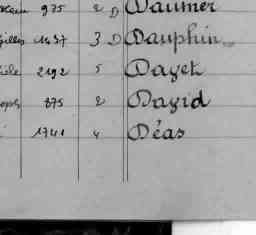 975 2 D Daumer
1437 3 D Dauphin
2192 5 Dayet
875 2 David
1741 4 Déas